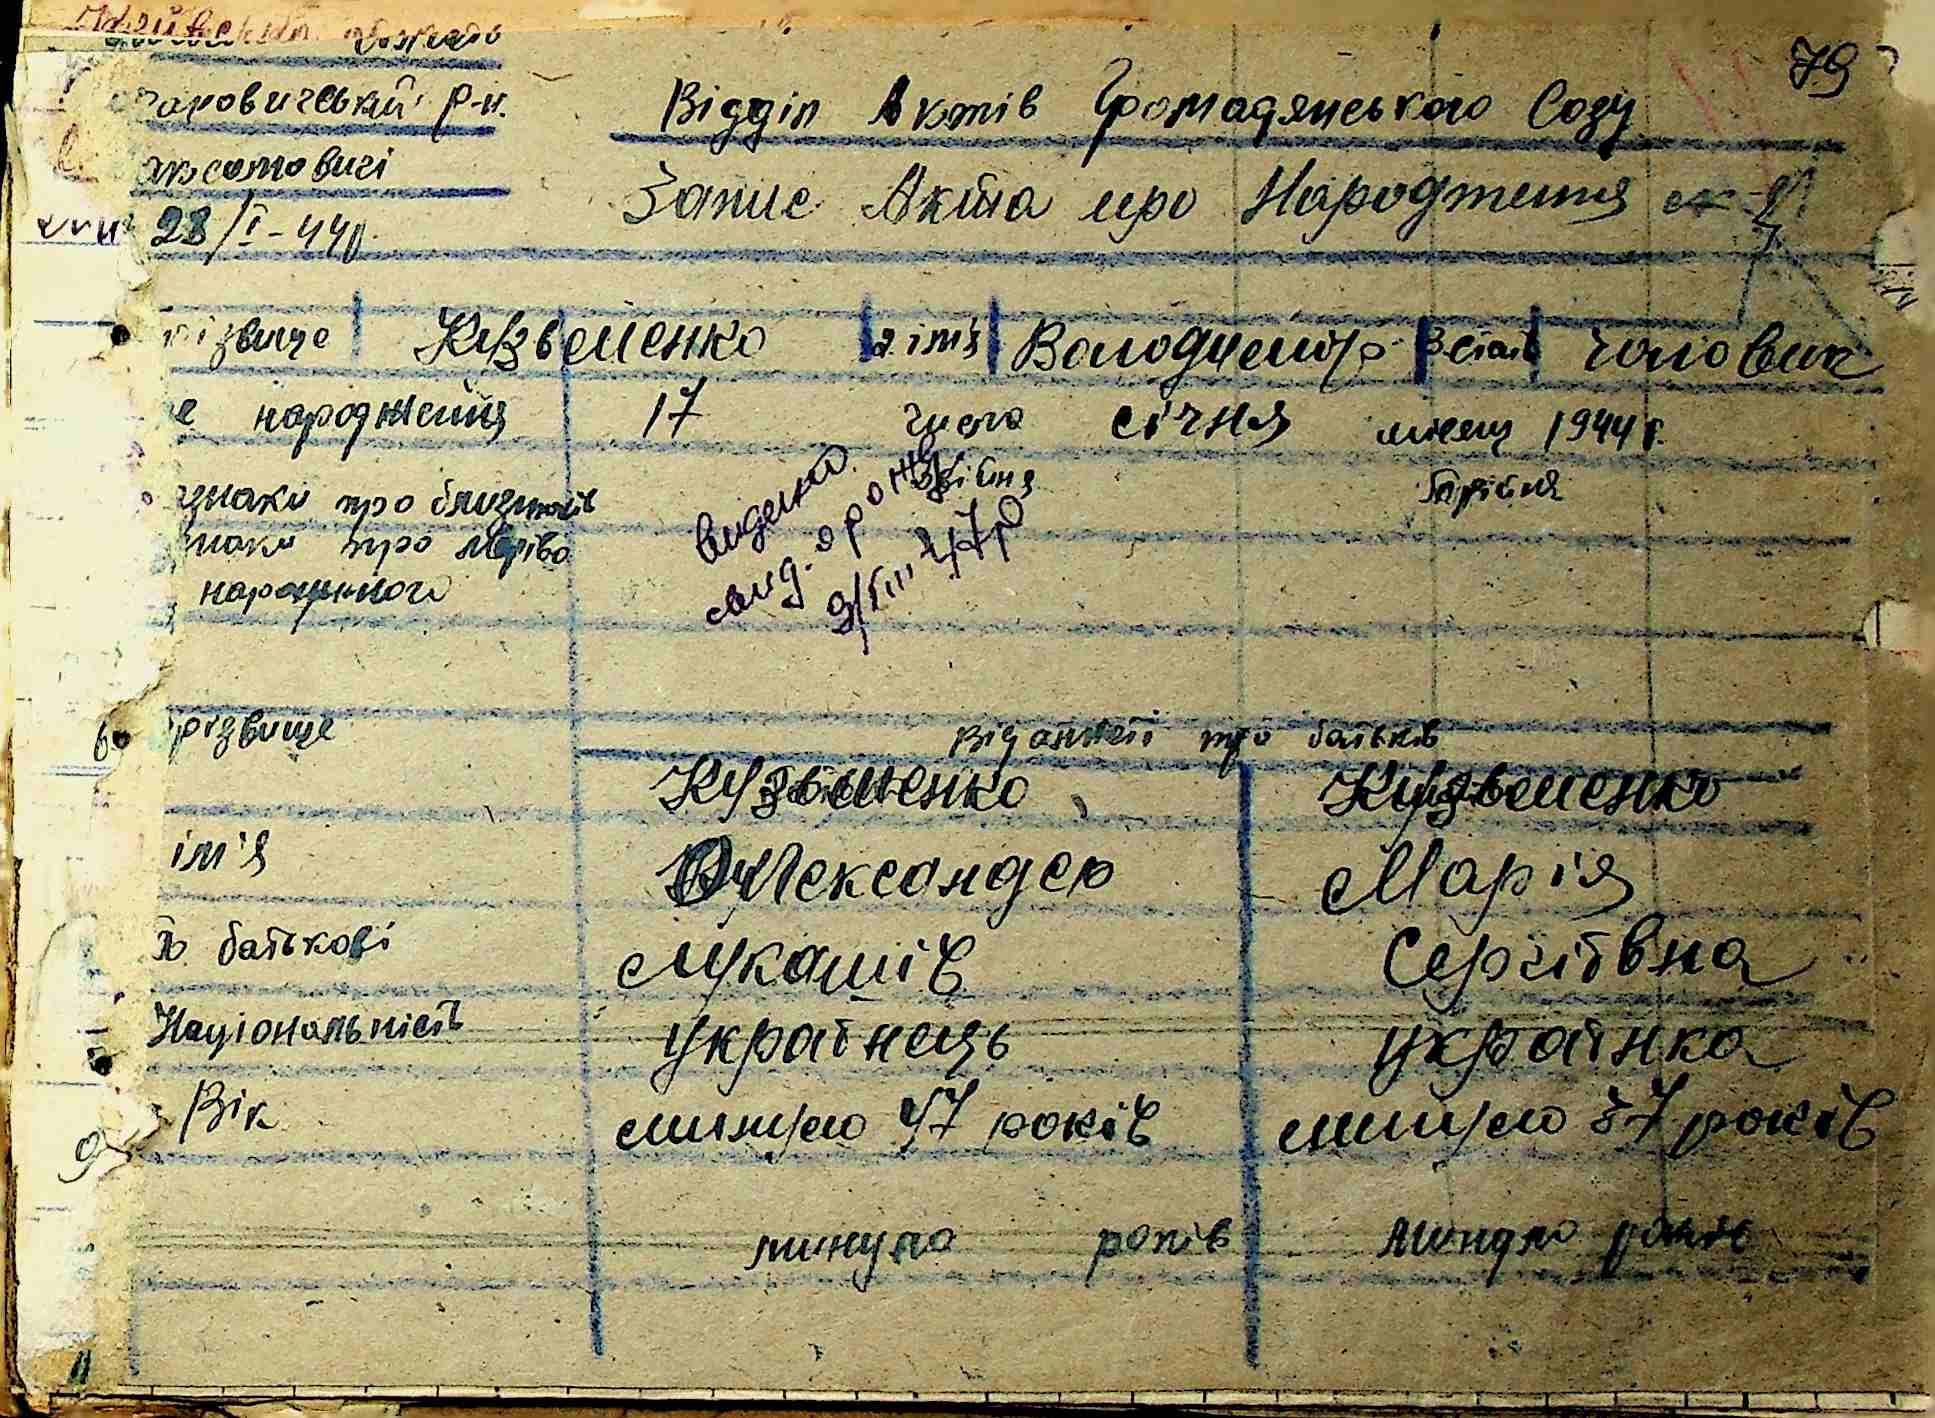 79
аровичський р-н.
Відділ Актів Громадянського Созу
аксимовичі
Запис Акта про Народження
28/I-44р.
різвище Кузьменко ім'я Володимир Стать Чоловік
народження 17 числа січня місяц 1944 г.
знаки про близнюків двійня трійня
знаки про мертво
народженого
видано
свид. о рожд
9/VIII 47р
6 різвище
Відомості про батьків
Кузьменко Кузьменко
ім'я Олександер Марія
По батькові Лукашів Сергіївна
Національність українець українка
9 Вік минуло 47 років минуло 37 років
минуло років минуло років
11